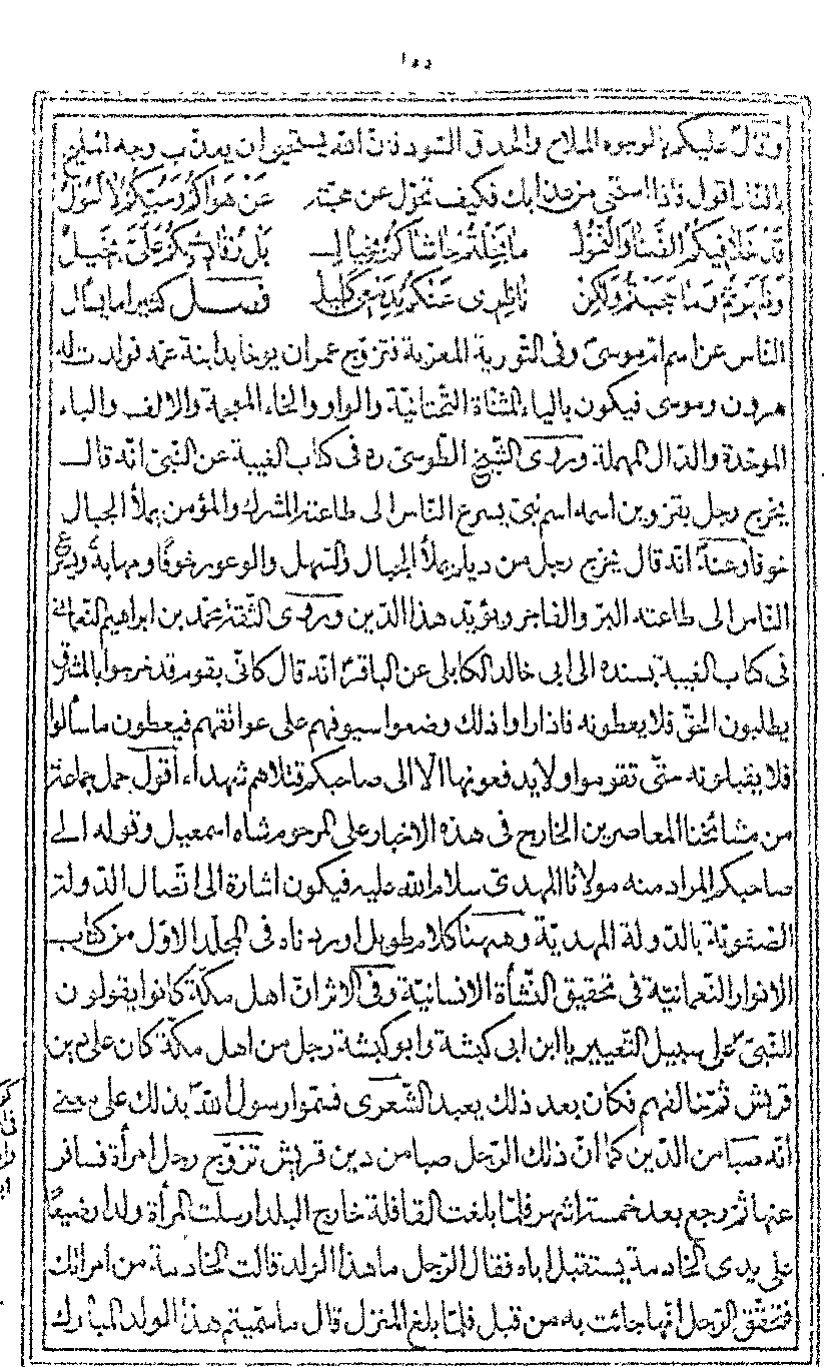 ١٥٥
وقال عليكم بالوجوه الملاح والحدق السود فانّ الله يستحيى ان يعذّب وجه المليح
بالنار اقول فاذا استحى من عذابك فكيف تحوّل عن محبّته عن هواكم وسبيكم لا اسول
قد خلا فيكم ما بخلتم حاشاكم بخيال بل رقادى بكم علىّ بخيل
وما حجبتم ولكن ناظرى عنكم كليل فصل كثيرا ما يسأل
الناس عن اسم امّ موسىّ وفى التورية المعربة فتزوّج عمران يوخابد ابنة عمّه فولدت له
هرون وموسى فيكون بالياء المثنّاة التحتانيّة والواو والخاء المعجمة والالف والباء
الموحّدة والدال المهملة وروى الشيخ الطوسىّ ره فى كتاب الغيبة عن النبىّ انّه قال
يخرج رجل بقزوين اسمه اسم نبىّ يسرع الناس الى طاعته المشرك والمؤمن يملأ الجبال
خوفا وعنه انّه قال يخرج رجل من ديلم يملأ الجبال والسهل والوعور خوفًا ومهابة ويسرع
الناس الى طاعته البرّ والفاجر ويؤيّد هذا الدّين وروى الثقة محمّد بن ابراهيم النعمانى
فى كتاب الغيبة بسنده الى ابى خالد الكابلى عن الباقر انّه قال كانّى بقوم قد خرجوا بالمشرق
يطلبون الحقّ فلا يعطونه فاذا راوا ذلك وضعوا سيوفهم على عواتقهم فيعطون ما سألوا
فلا يقبلونه حتّى تقوموا ولا يدفعونها الّا الى صاحبكم قتلاهم شهداء اقول حمل جماعة
من مشائخنا المعاصرين الخارج فى هذه الاخبار على المرحوم شاه اسمعيل وقوله الى
صاحبكم المراد منه مولانا المهدىّ سلام الله عليه فيكون اشارة الى اتّصال الدّولة
الصفويّة بالدّولة المهديّة وههنا كلام طويل اوردناه فى المجلّد الاوّل من كتاب
الانوار النّعمانيّة فى تحقيق النّشأة الانسانيّة وفى الاثر انّ اهل مكّة كانوا يقولون
للنبىّ على سبيل التّعيير يا ابن ابى كبشة وابو كبشة رجل من اهل مكّة كان على دين
قريش ثمّ خالفهم فكان بعد ذلك يعبد الشّعرى فسمّوا رسول الله بذلك على معنى
انّه صبا من الدّين كما انّ ذلك الرّجل صبا من دين قريش تزوّج رجل امرأة فسافر
عنها ثمّ رجع بعد خمسة اشهر فلمّا بلغت القافلة خارج البلد ارسلت المرأة ولدا رضيعًا
على يدى الخادمة يستقبل اباه فقال الرّجل ما هذا الولد قالت الخادمة من امراتك
فتحقّق الرّجل انّها جائت به من قبل فلمّا بلغ المنزل قال ما سمّيتم هذا المولد المبارك